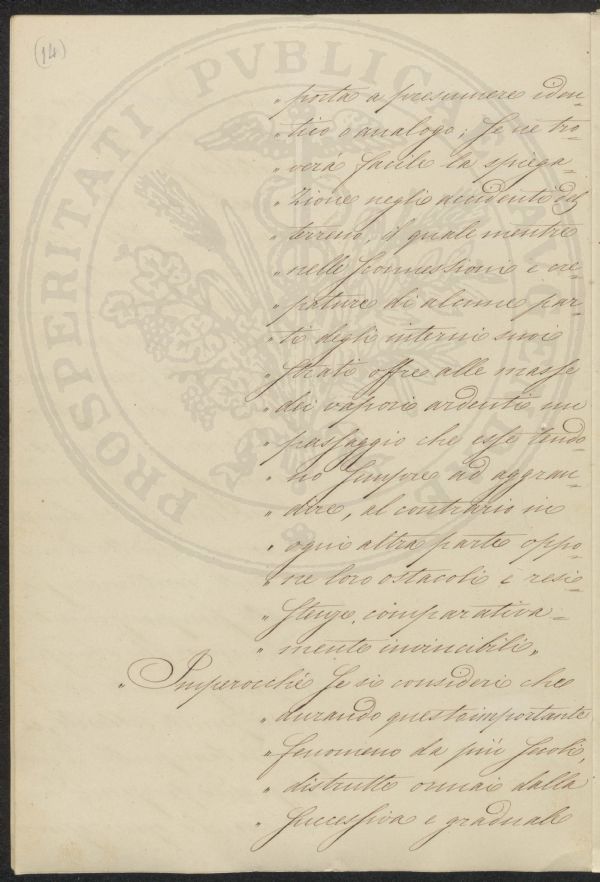 (14)
„ porta a presumere iden=
„ tico o analogo; Se ne tro=
„ verà facile la spiega=
„ zione negli accidenti del
„ terreno, il quale mentre
„ nelle sconnessioni e cre=
„ pature di alcune par=
„ ti degli interni suoi
„ strati offre alle masse
„ dei vapori ardenti un
„ passaggio che esse tendo=
„ no sempre ad aggran=
„ dire, al contrario in
„ ogni altra parte oppo=
„ ne loro ostacoli e resi=
„ stenze comparativa=
„ mente invincibili„
„ Imperocché se si consideri che
„ durando questo importante
„ fenomeno da più secoli,
„ distrutte ormai dalla
„ successiva e graduale
PROSPERITATI PVBLICAE